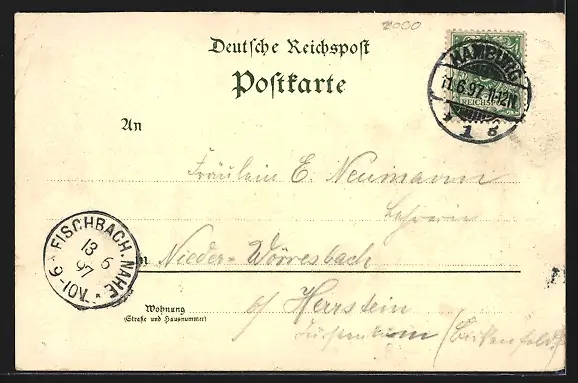 2000
Deutsche Reichspost
Postkarte
HAMBURG
11.6.97 11-12N
REICHSPOST
* 1 g
An
Fräulein E. Neumann
Lehrerin
FISCHBACH. NAHE *
13 6
97
9-10V.
in Nieder-Wörresbach
b/ Herrstein
Wohnung
(Straße und Hausnummer)
Fürstentum (Birkenfeld)